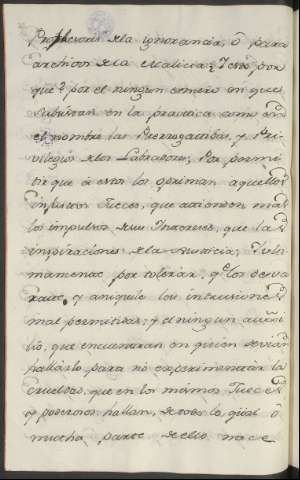 de la ignorancia, ó para
de la Malicia; Y esto por
que? por el ningun esmero en que
subsistan en la practica como en
el nombre las Prerrogattibas, y Pri-
vilegios de los Labradores; Por permi-
tir que á estos los opriman aquellos
injustos Jueces, que atienden mas
los impulsos de sus Intereses, que las
inspiraciones de la Justicia; Y ulti-
mamente por tolerar, qe los
y aniquile los intrusiones
mal permitidas; y el ningun auxi-
lio, que encuentran en quien devian
hallarlo para no experimentar la
crueldad, que en los mismos Jueces
y poderosos hallan, de todo lo qual ó
mucha parte de ello nace